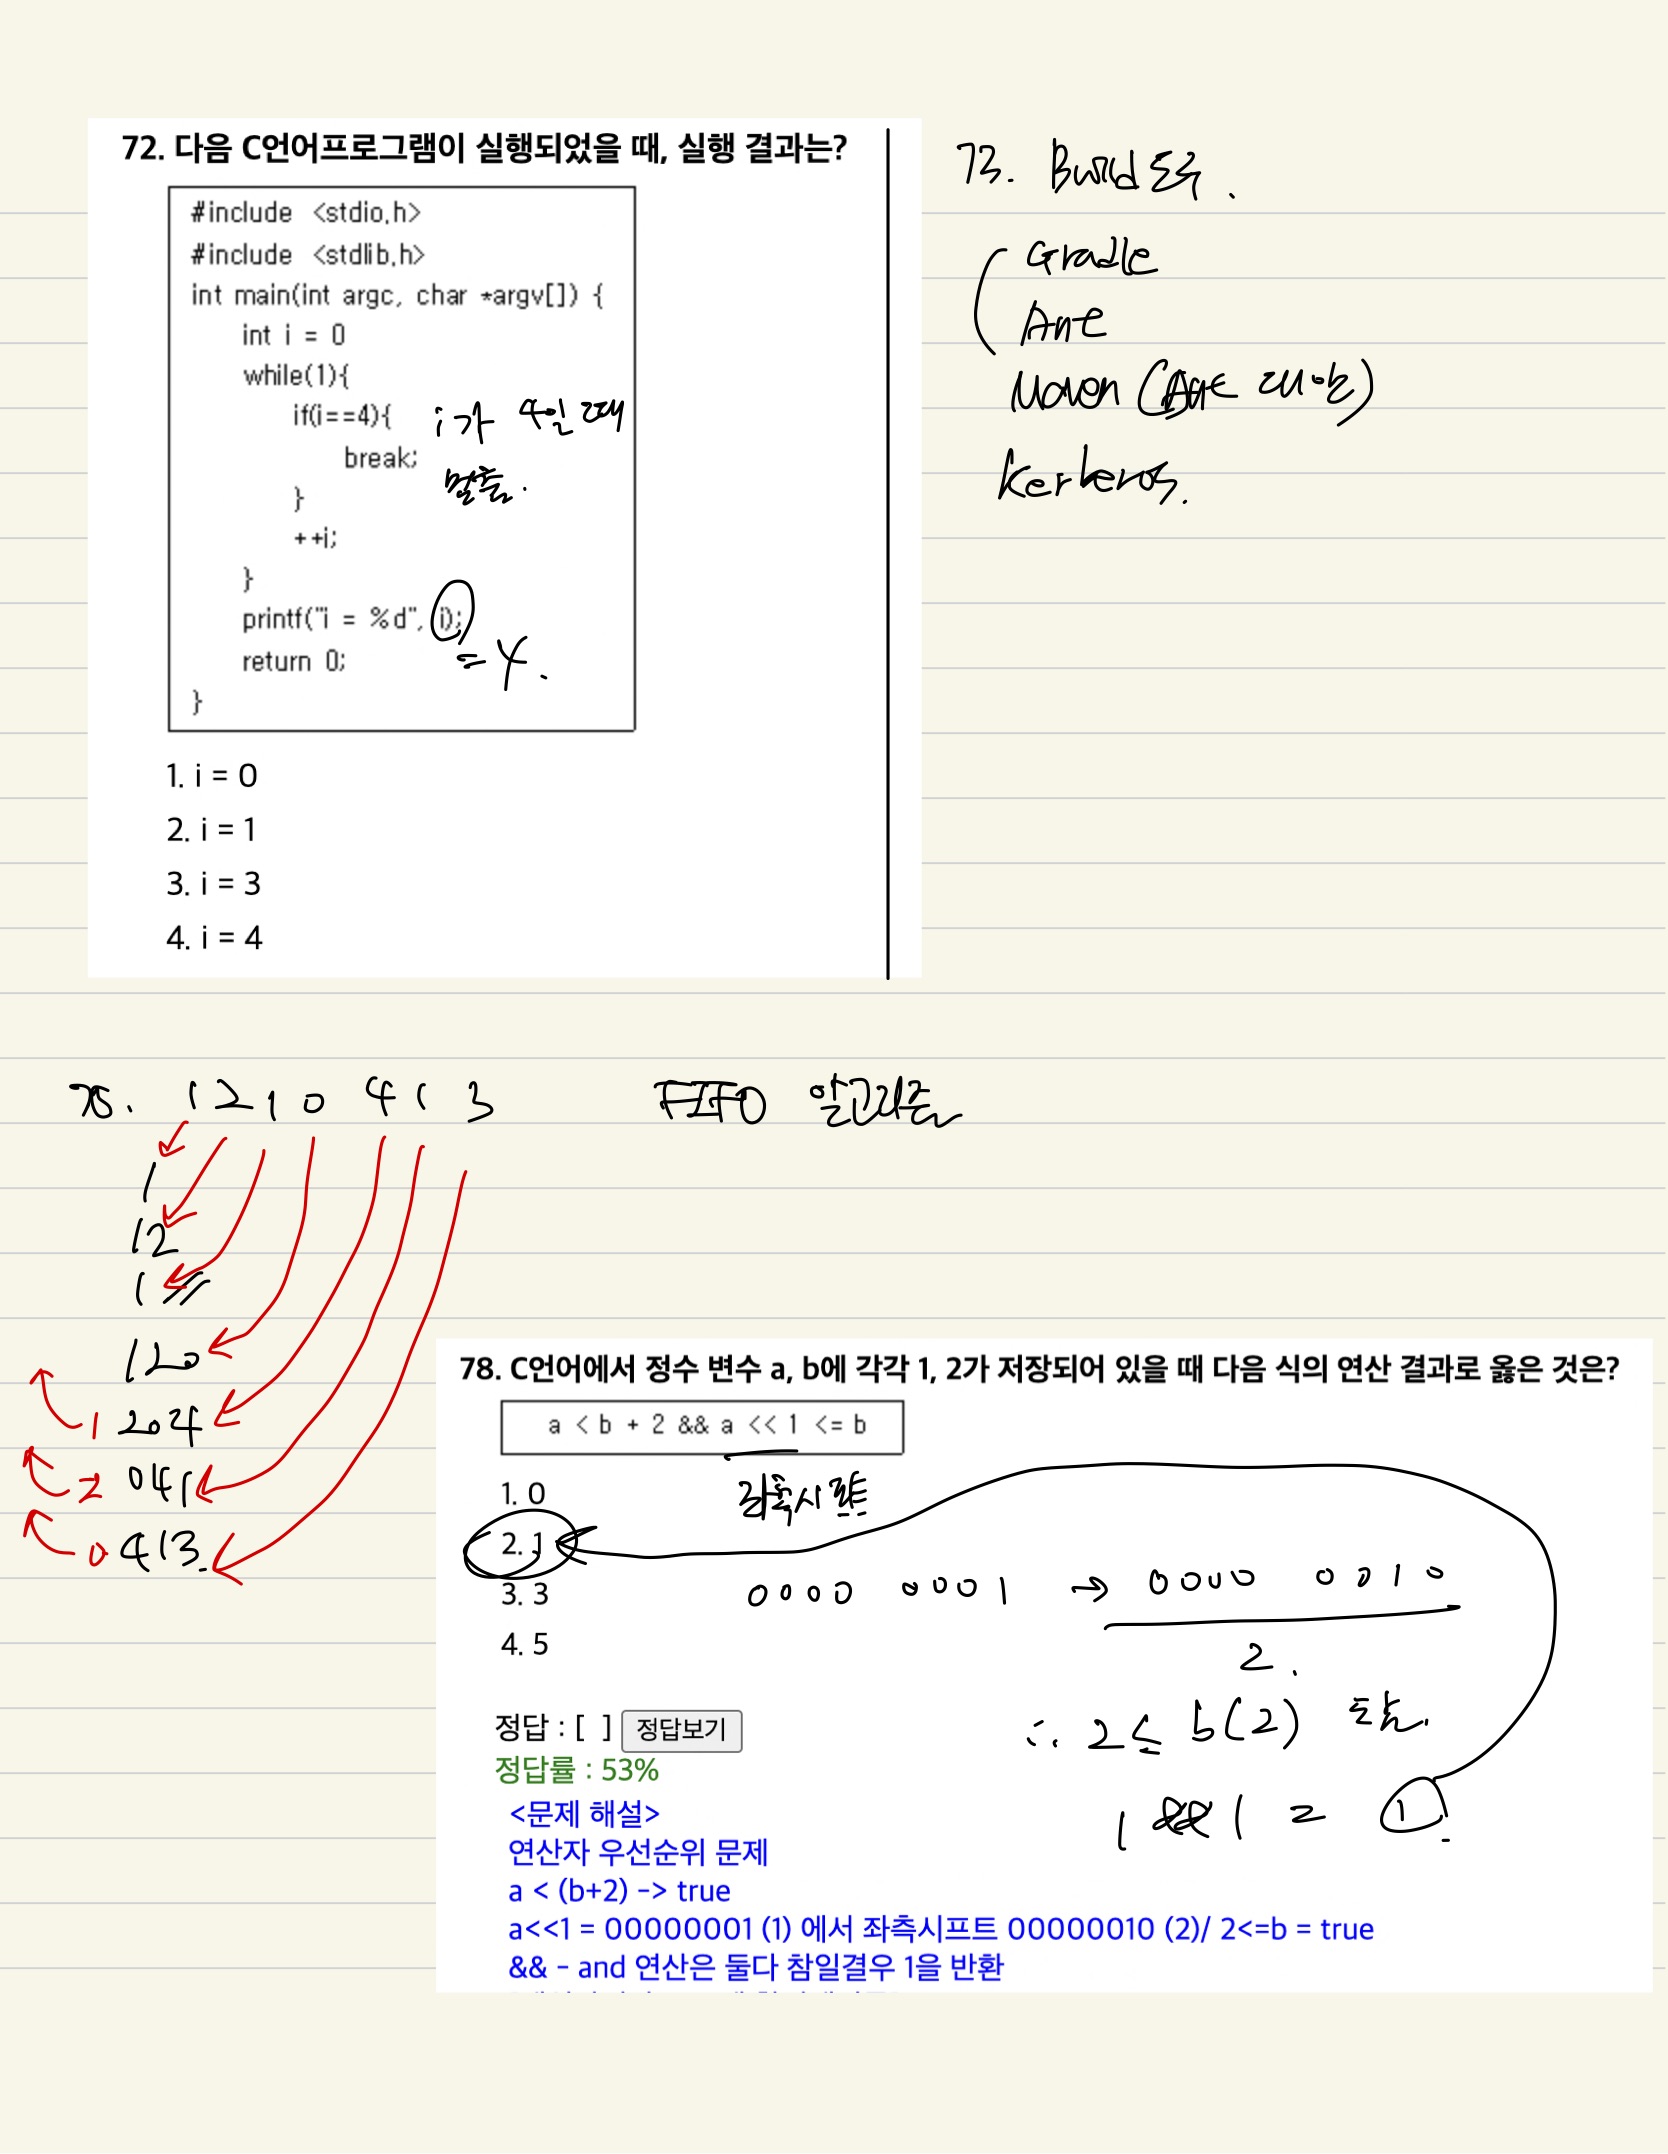 72. 다음 C언어프로그램이 실행되었을 때, 실행 결과는?
#include <stdio.h>
#include <stdlib.h>
int main(int argc, char *argv[]) {
int i = 0
while(1){
if(i==4){
break;
}
++i;
}
printf("i = %d", i);
return 0;
}
i가 4일 때
멈춤.
= 4.
1. i = 0
2. i = 1
3. i = 3
4. i = 4
73. Build 도구.
Gradle
Ant
Maven (Ant 대안)
Kerberos.
75. 1 2 1 0 4 1 3 FIFO 알고리즘
1
1 2
1
1 2 0
1 2 0 4
2 0 4 1
0 4 1 3.
78. C언어에서 정수 변수 a, b에 각각 1, 2가 저장되어 있을 때 다음 식의 연산 결과로 옳은 것은?
a < b + 2 && a << 1 <= b
좌측시프트
1. 0
2. 1
3. 3
4. 5
0000 0001 → 0000 0010
2.
∴ 2 ≤ b(2)
1 && 1 = 1.
정답 : [ ] 정답보기
정답률 : 53%
<문제 해설>
연산자 우선순위 문제
a < (b+2) -> true
a<<1 = 00000001 (1) 에서 좌측시프트 00000010 (2)/ 2<=b = true
&& - and 연산은 둘다 참일결우 1을 반환